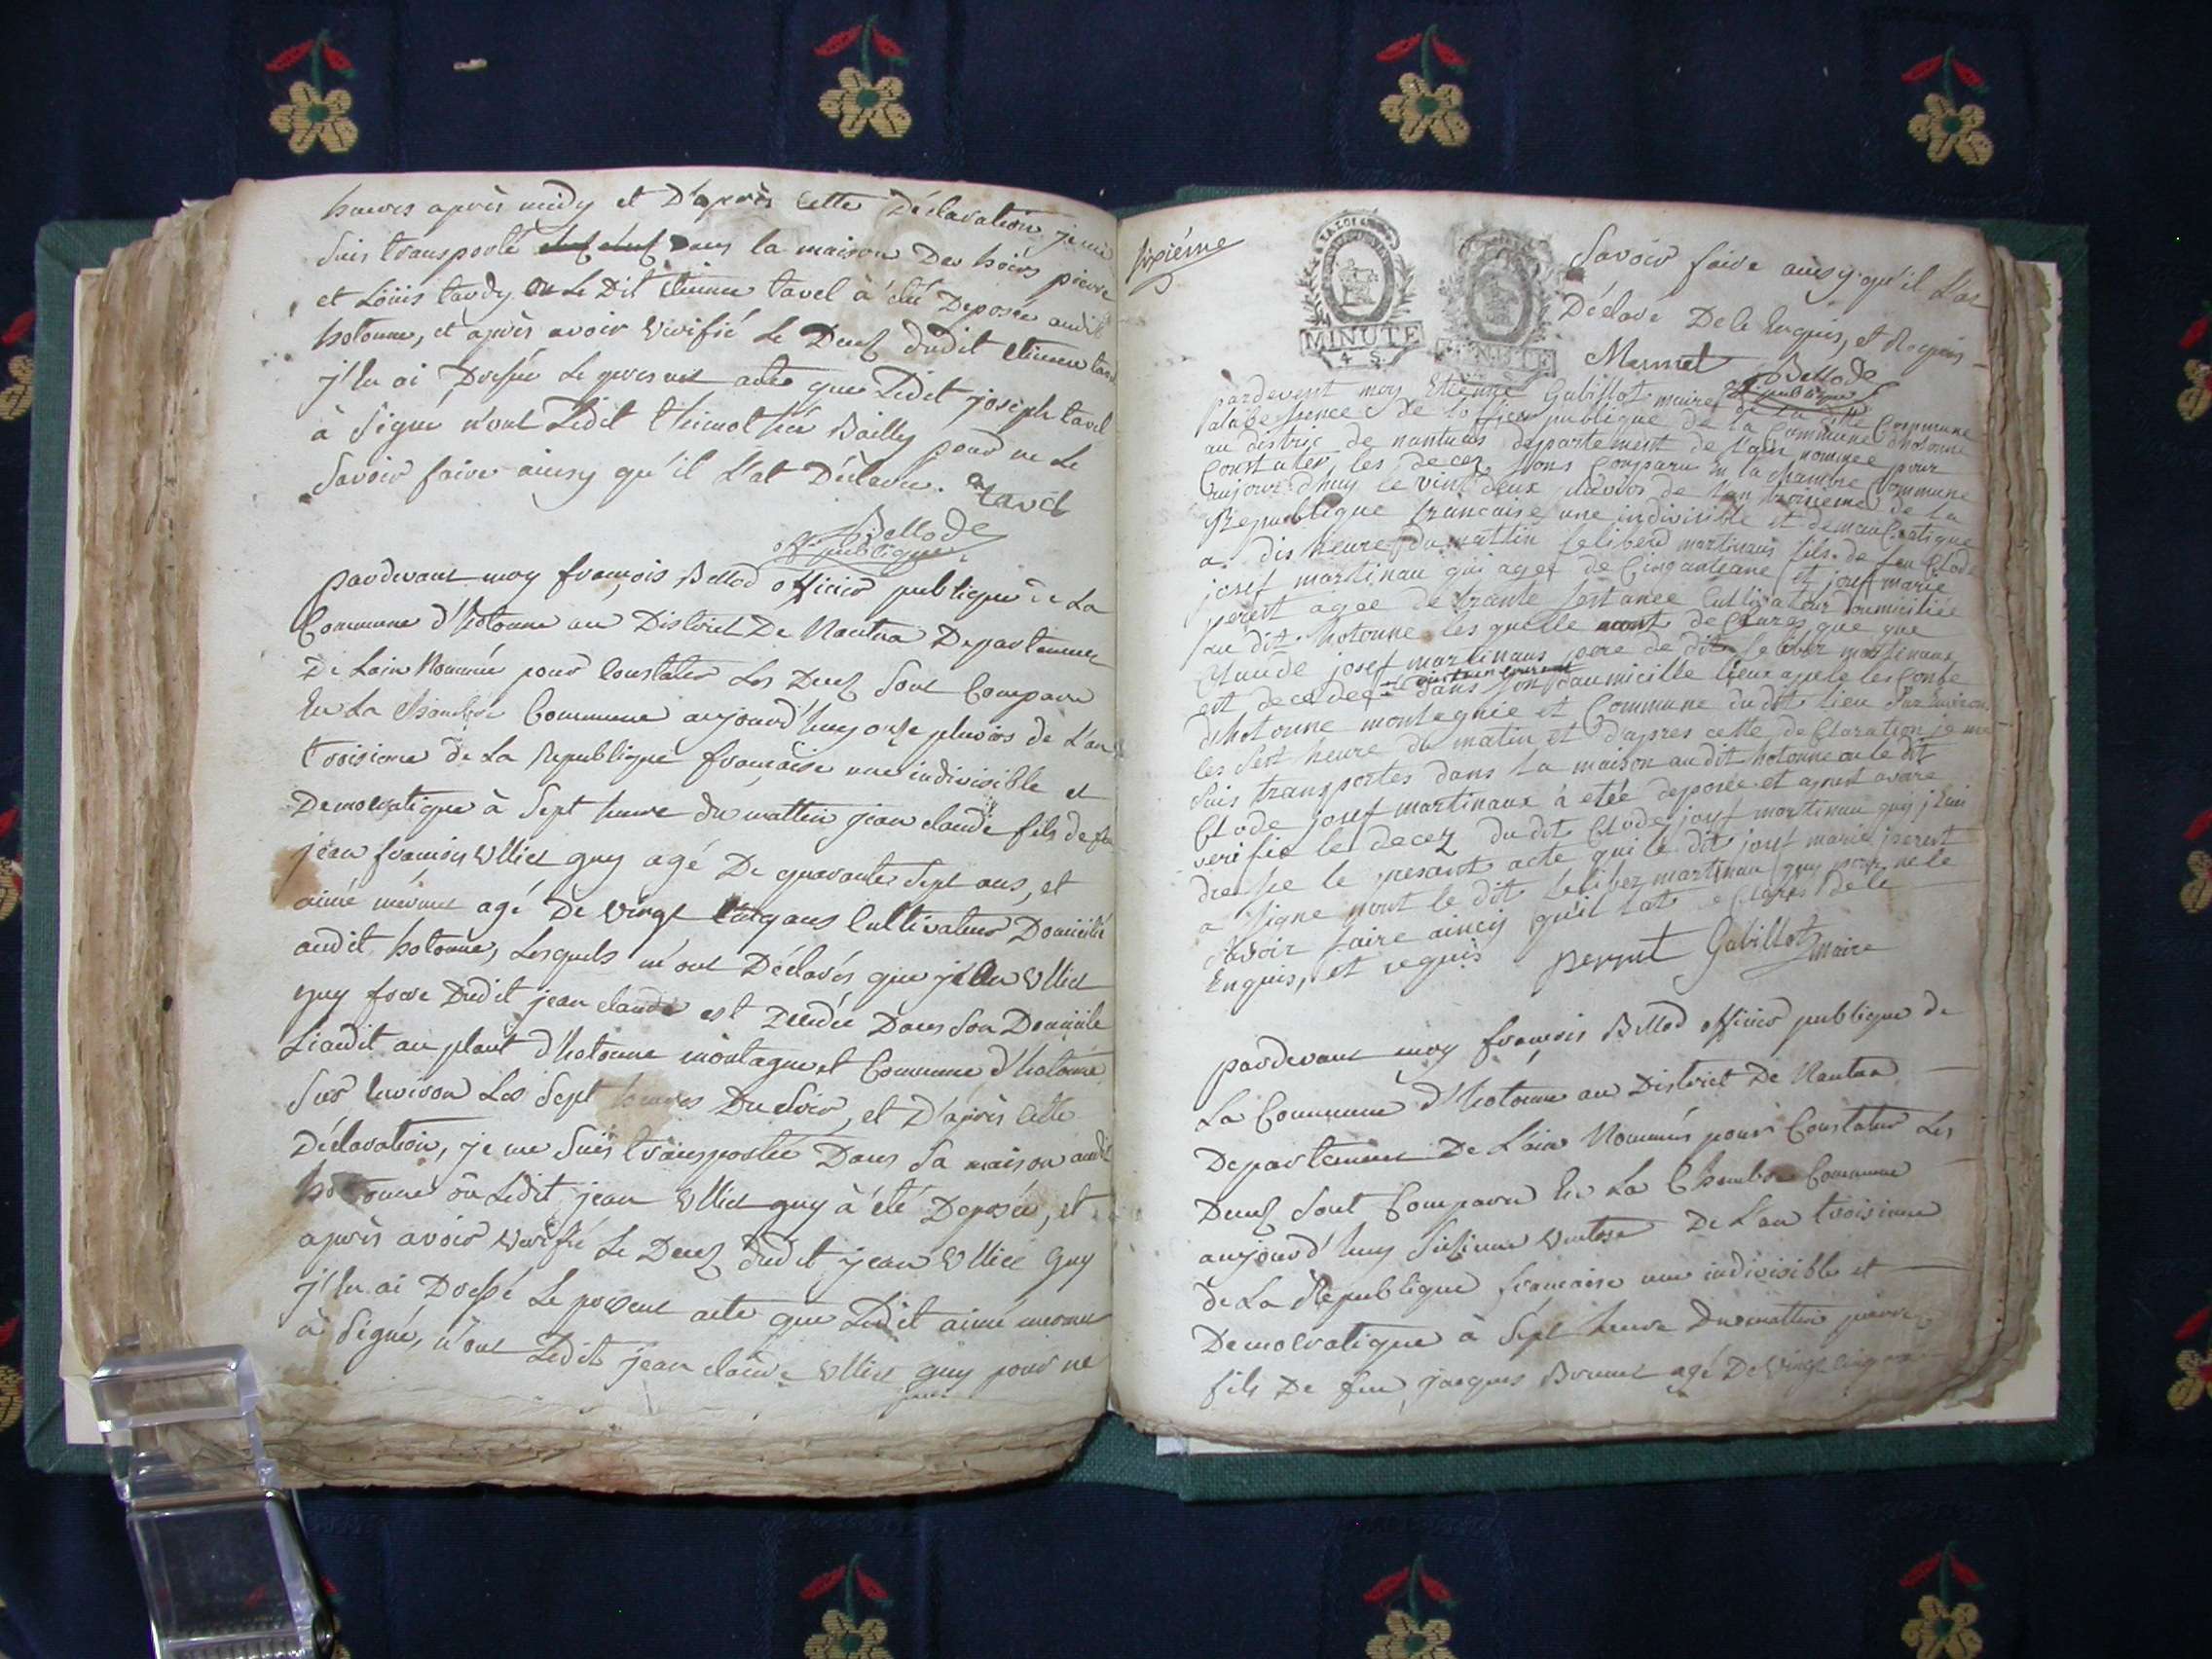 heures après midy et D'après Cette Déclaration je me
suis transporté Dans la maison Des hoirs pierre
et Loüis tardy ou Le Dit Etienne tavel à été Deposée audit
hotonne, et après avoir verifié Le Decez dudit Etienne tavel
j'En ai Dressée Le present acte que Ledit joseph tavel
à signé n'ont Ledit thimothée Bailly pour ne Le
savoir faire ainsy qu'il L'at Déclaré. tavel
Bellod
off publique
pardevant moy françois Bellod officier publique de La
Commune d'hotonne au District De Nantua Departement
De Lain Nommée pour Constater Les Decez sont Comparu
En La Chambre Commune aujourd'huy onze pluvios de L'an
troisieme de La Republique française une indivisible et
Democratique à sept heure du mattin jean claude fils de feu
jean françois Elliet guy agé De quarante sept ans, et
aimé mermet agé De vingt Cinq ans Cultivateur Domicilié
audit hotonne, Lesquels m'ont Déclarés que jean Elliet
guy frere Dudit jean claude est Decedée Dans son Domicile
Lieudit au plant d'hotonne montagne et Commune d'hotonne
sur Environ Les sept heures Du soir, et D'après Cette
Déclaration, je me suis transportée Dans sa maison audit
hotonne ou Ledit jean Elliet guy à été Deposée, et
après avoir verifié Le Decez dudit jean Elliet guy
j'En ai Dressé Le present acte que Ledit aimé mermet
à signé, n'ont Ledit jean claude Elliet guy pour ne
sixiéme
MINUTE
4 S.
savoir faire ainsy qu'il L'at
Déclaré De le Enquis, et Requis
Mermet Bellod
off publique
pardevent moy Etienne Gabillot maire de la dite Commune
alabesence de lofficier publique de la Commune dhotonne
au distric de nantuas departement de lain nommée pour
Constater, les decez sons Conparu En la chambre Commune
aujourdhuy le vint deux pluvios de lan troisieme de la
Republique francaise une indivisible et demaucratique
a dis heure du mattin feliberd martinaus fils de feu Clode
josef martinau qui agee de Cinquanteane et josef marie
peret agee de trante sest anée Cultivateur doumicilié
au dit hotonne les quelle mont declares que
Claude josef martinaus de dit felibez martinaux
est decedee dans son doumicille lieux apele les Conbe
dhotonne montagnie et Commune du dit lieu sur Environ
les sest heure du matin et dapres cette declaration je me
suis transportes dans la maison audit hotonne ou le dit
Clode josef martinaux à etée deposée et apres avoire
verifie le decez du dit Clode josef martinau guy j Enai
dresse le presant acte qui le dit josef marie perest
a signe nont le dit felibez martinau guy pour ne le
savoir faire aincy qu'il lat declares dele
Enquis, et requis perest Gabillot maire
pardevant moy françois Bellod officier publique de
La Commune d'hotonne au District De Nantua
Departement De L'ain Nommés pour Constater Les
Decez sont Comparu En La Chambre Commune
aujourd'huy sixieme ventose De L'an troisieme
de La Republique francaise une indivisible et
Democratique à sept heure Du mattin pierre
fils De feu jacques Brunet agé De vingt cinq